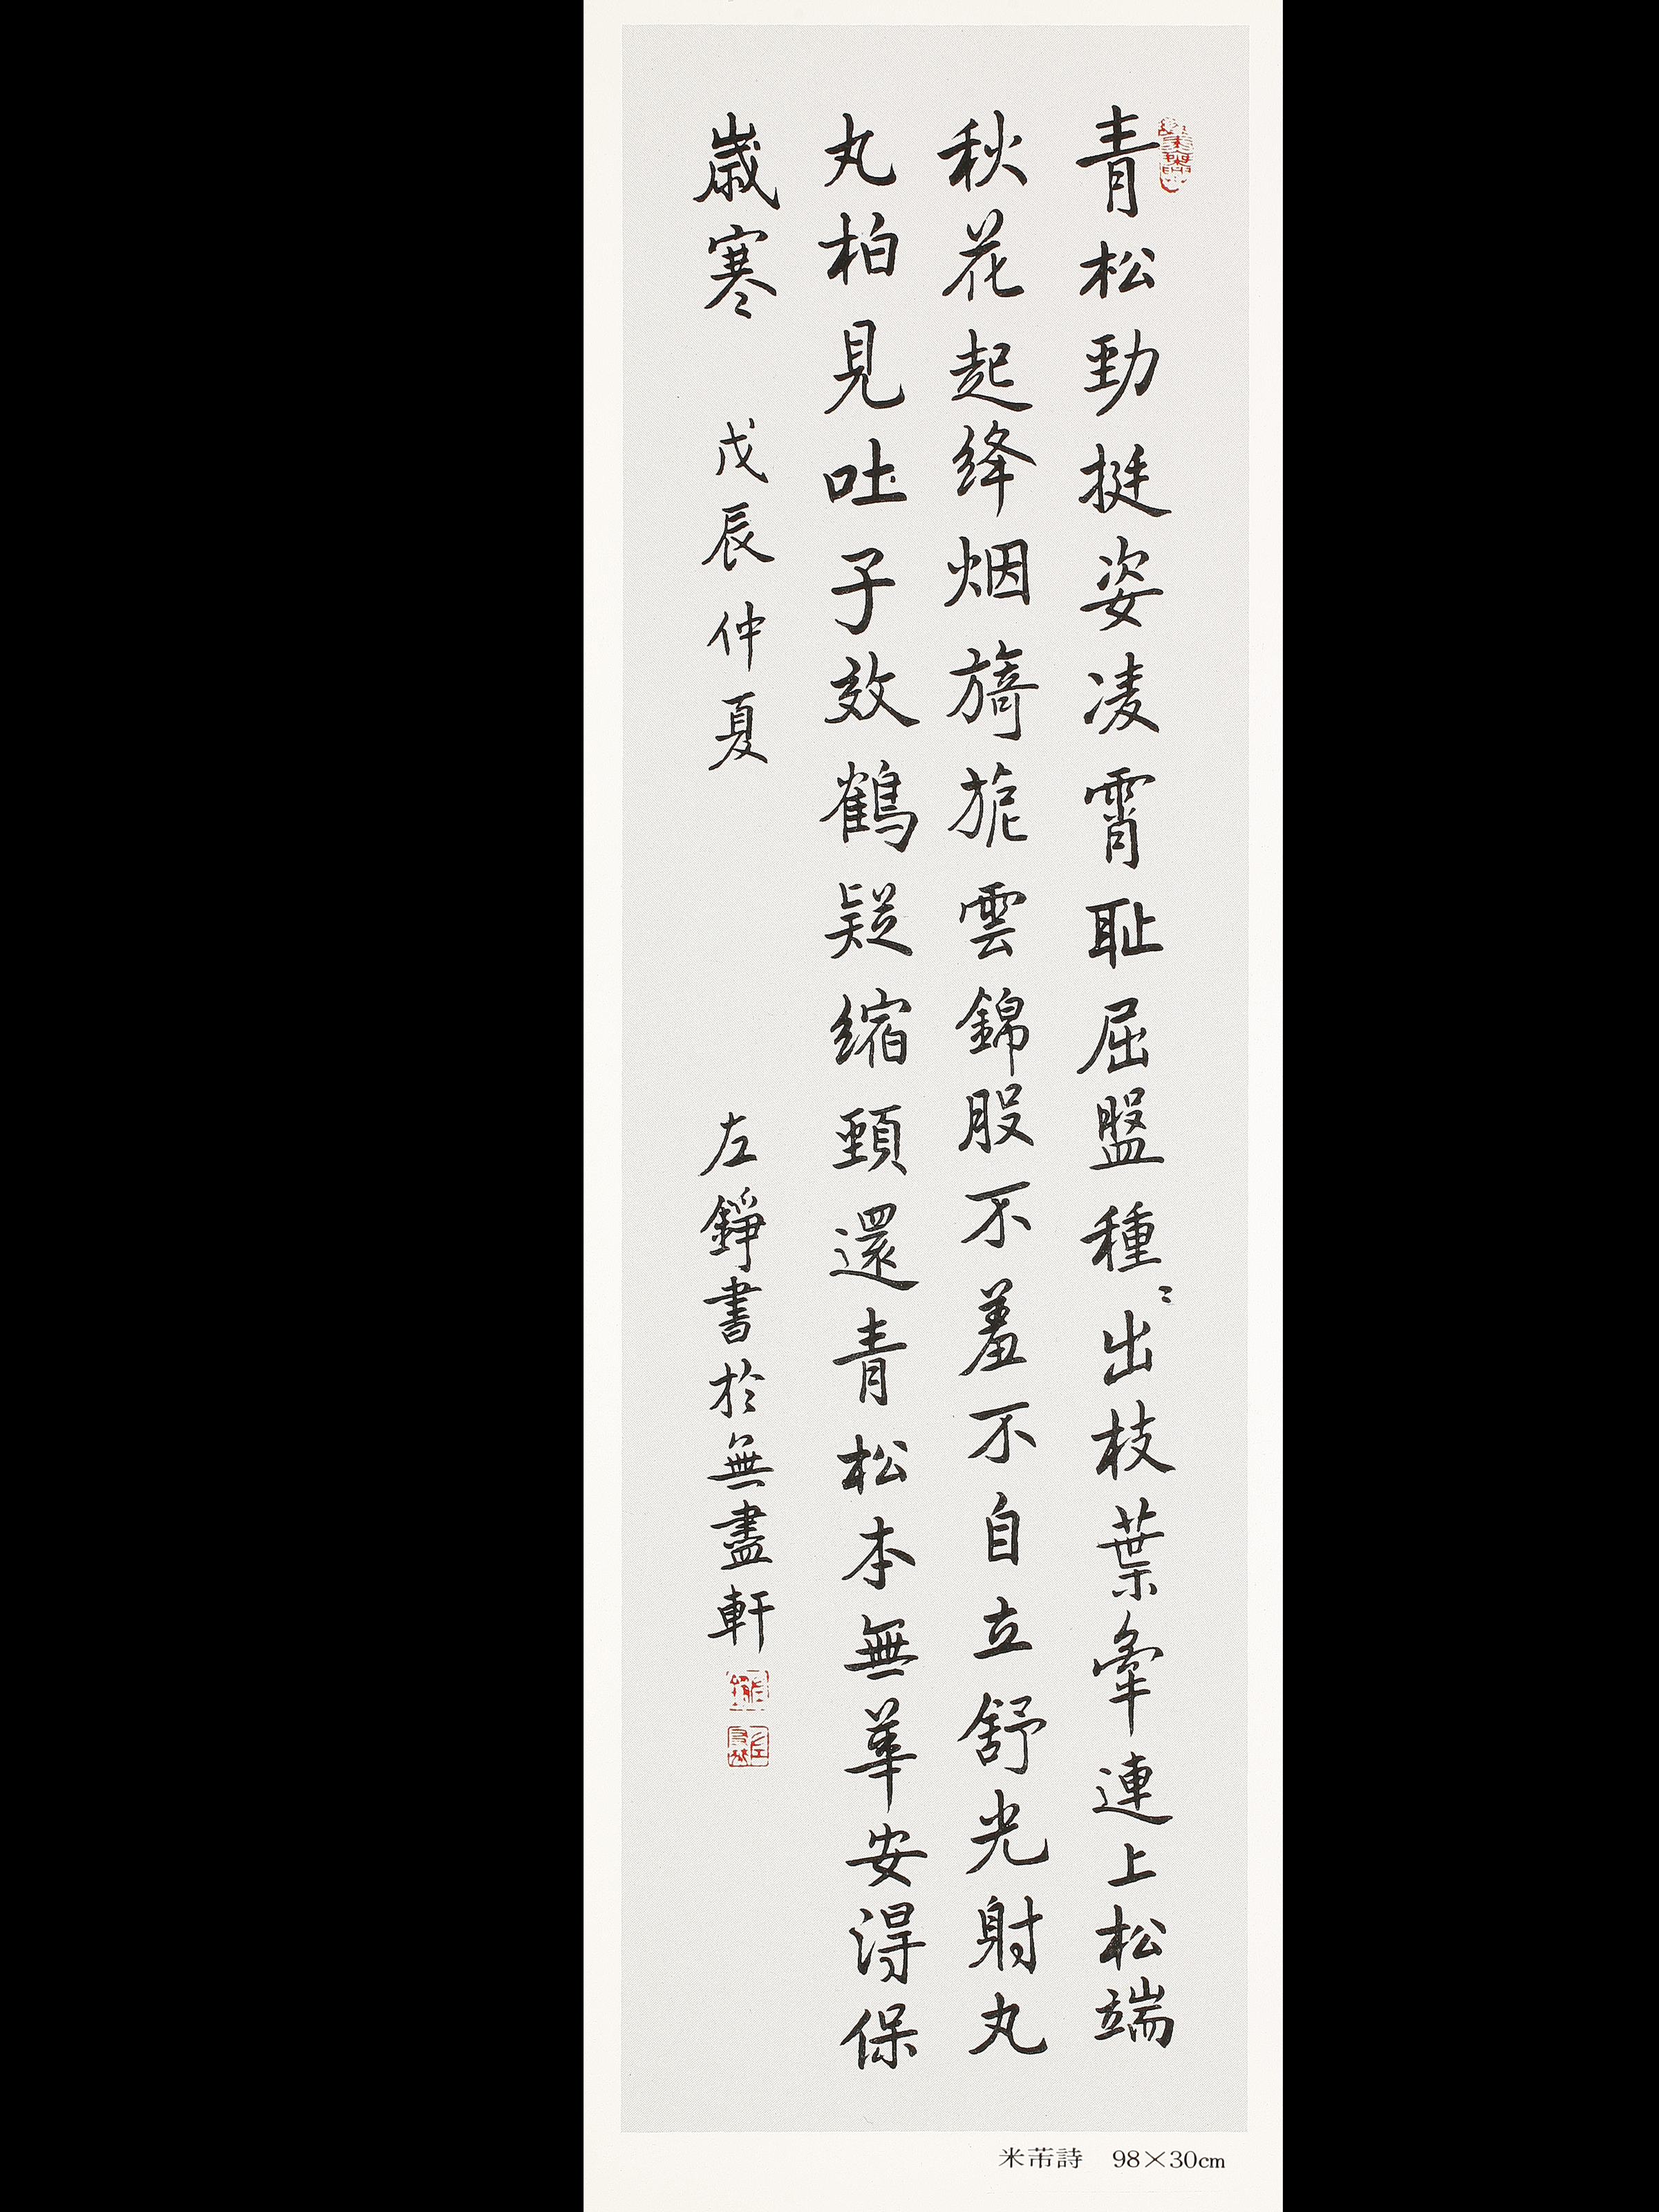 青松勁挺姿凌霄耻屈盤種〻出枝葉牽連上松端
秋花起絳烟旖旎雲錦股不羞不自立舒光射丸
丸柏見吐子效鶴疑縮頸還青松本無華安得保
歲寒 戊辰仲夏 左錚書於無盡軒
米芾詩 98×30cm